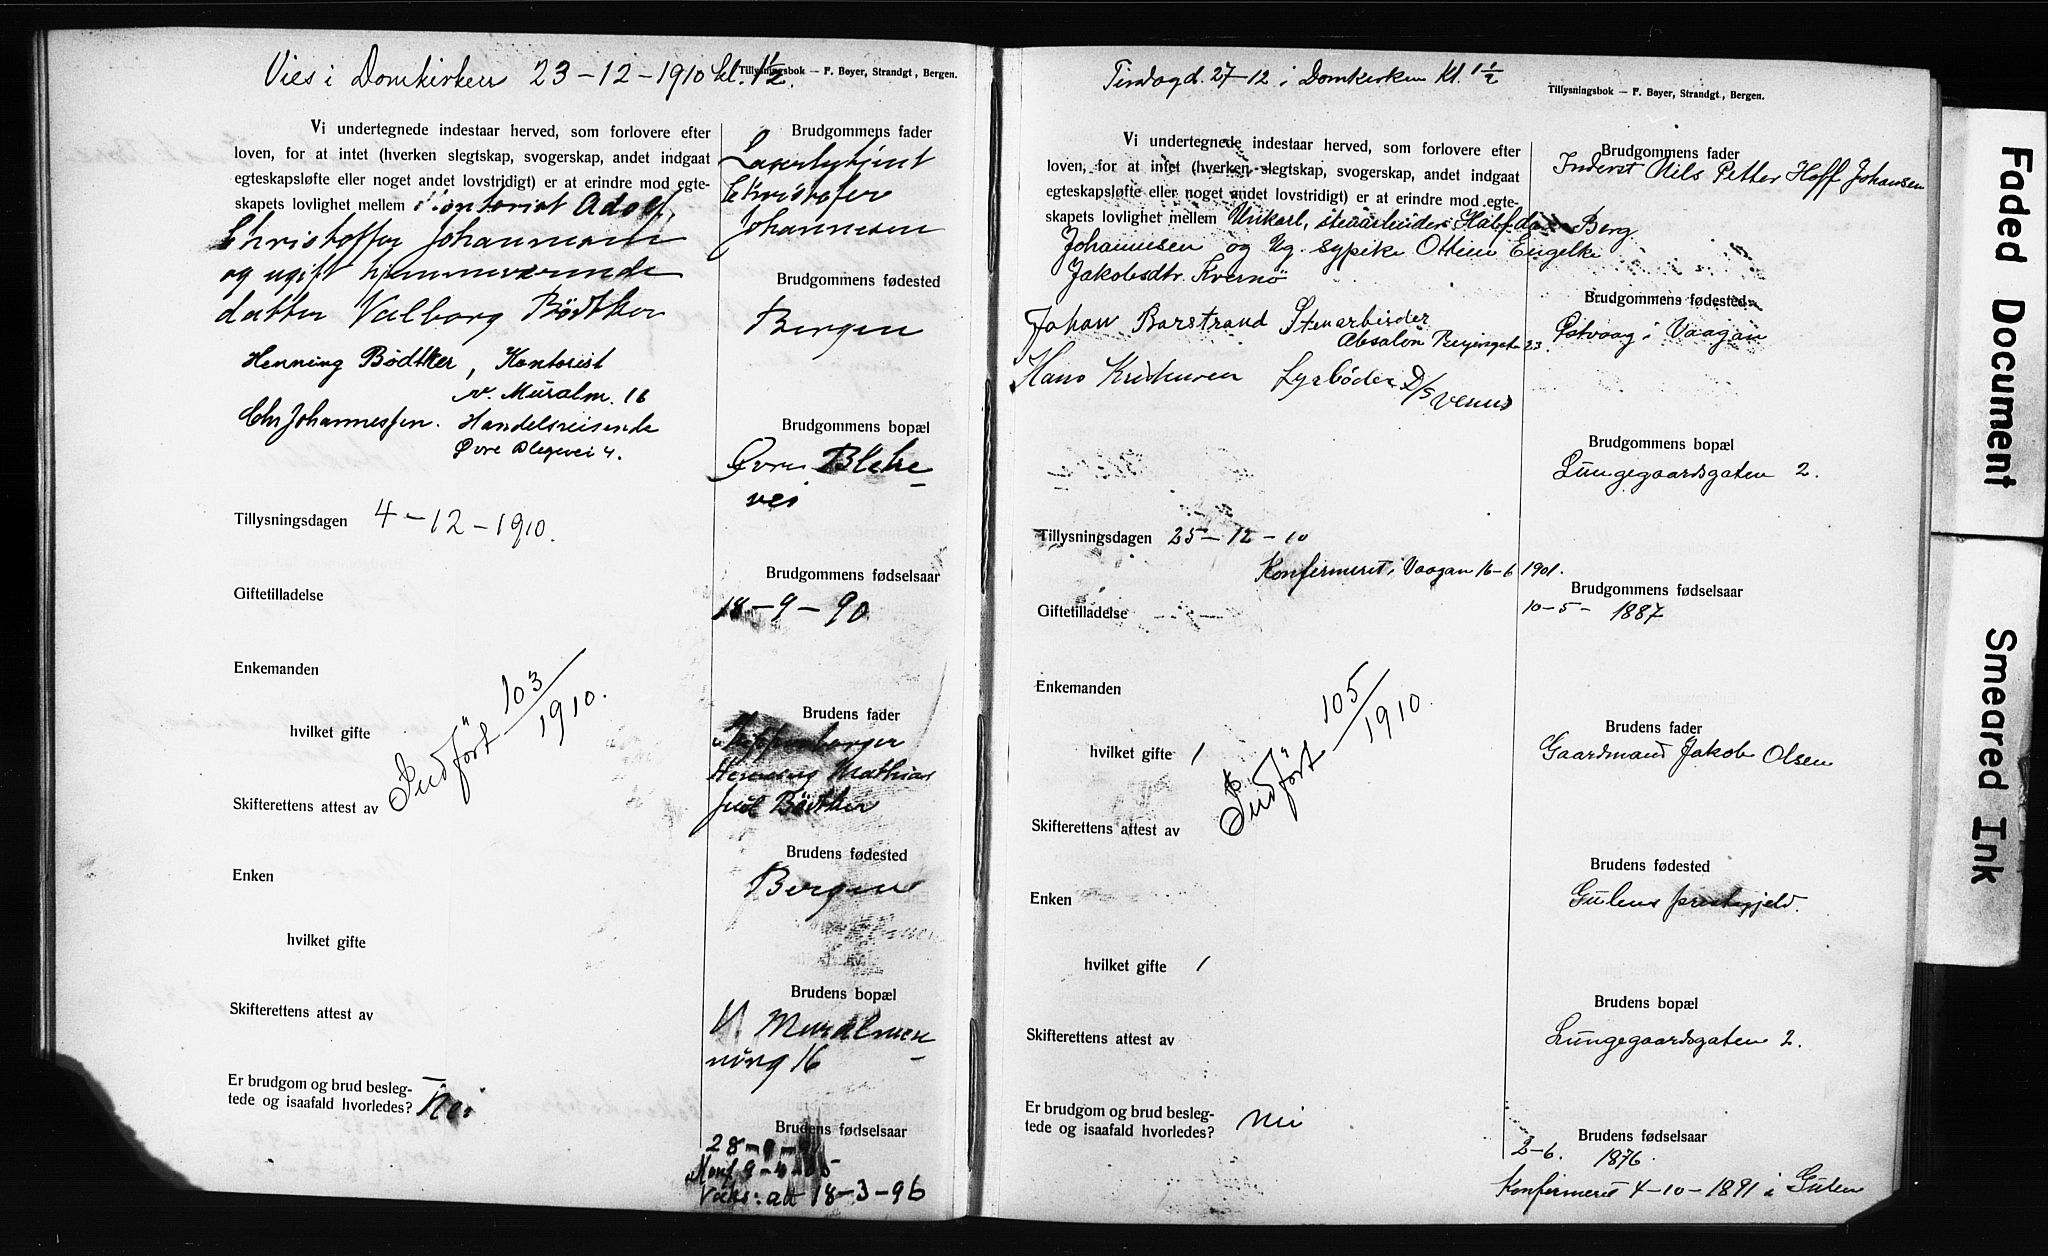 Vies i Domkirken 23-12-1910 kl. 1½.
Tillysningsbok — F. Beyer, Strandgt, Bergen.
Vi undertegnede indestaar herved, som forlovere efter
loven, for at intet (hverken slegtskap, svogerskap, andet indgaat
egteskapsløfte eller noget andet lovstridigt) er at erindre mod egte-
skapets lovlighet mellem Kontorist Adolf
Christoffer Johannesen
og ugift hjemmeværende
datter Valborg Bödtker
Henning Bødtker, Kontorist
N. Muralm. 16
Chr Johannessen. Handelsreisende
Øvre Blegevei 4.
Tillysningsdagen 4-12-1910.
Giftetilladelse
Enkemanden
hvilket gifte
Indfört 103/1910.
Skifterettens attest av
Enken
hvilket gifte
Skifterettens attest av
Er brudgom og brud besleg-
tede og isaafald hvorledes? Nei
Brudgommens fader
Christofer
Johannesen
Brudgommens fødested
Bergen
Brudgommens bopæl
Øvre Bleke-
vei
Brudgommens fødselsaar
18-9-90
Brudens fader
Henning Mathias
Juel Bödtker
Brudens fødested
Bergen
Brudens bopæl
N. Muralmen-
ning 16
Brudens fødselsaar
28-9-
Konf 9-4-
Vaks: att 18-3-96
Tirsdag d. 27-12 i Domkirken Kl. 1½
Tillysningsbok — F. Beyer, Strandgt, Bergen.
Vi undertegnede indestaar herved, som forlovere efter
loven, for at intet (hverken slegtskap, svogerskap, andet indgaat
egteskapsløfte eller noget andet lovstridigt) er at erindre mod egte-
skapets lovlighet mellem Unkarl, stenarbeider Halfdan Berg
Johannesen og Ug. sypike Ottine Engelke
Jakobsdtr. Kvernö
Johan Barstrand Stenarbeider
Absalon Beyersgate 23.
Hans Kristensen Fyrböder D/S Venus
Tillysningsdagen 25-12-10
Konfermeret i Vaagan 16-6 1901.
Giftetilladelse
Enkemanden
hvilket gifte 1
Indfört 105/1910.
Skifterettens attest av
Enken
hvilket gifte 1
Skifterettens attest av
Er brudgom og brud besleg-
tede og isaafald hvorledes? Nei
Brudgommens fader
Inderst Nils Petter Hoff Johansen
Brudgommens fødested
Østvaag i Vaagan
Brudgommens bopæl
Lungegaardsgaten 2.
Brudgommens fødselsaar
10-5- 1887
Brudens fader
Gaardmand Jakob Olsen
Brudens fødested
Gulens prestegjeld.
Brudens bopæl
Lungegaardsgaten 2.
Brudens fødselsaar
2-6. 1876.
Konfermeret 4-10-1891 i Gulen
Faded Document
Smeared Ink